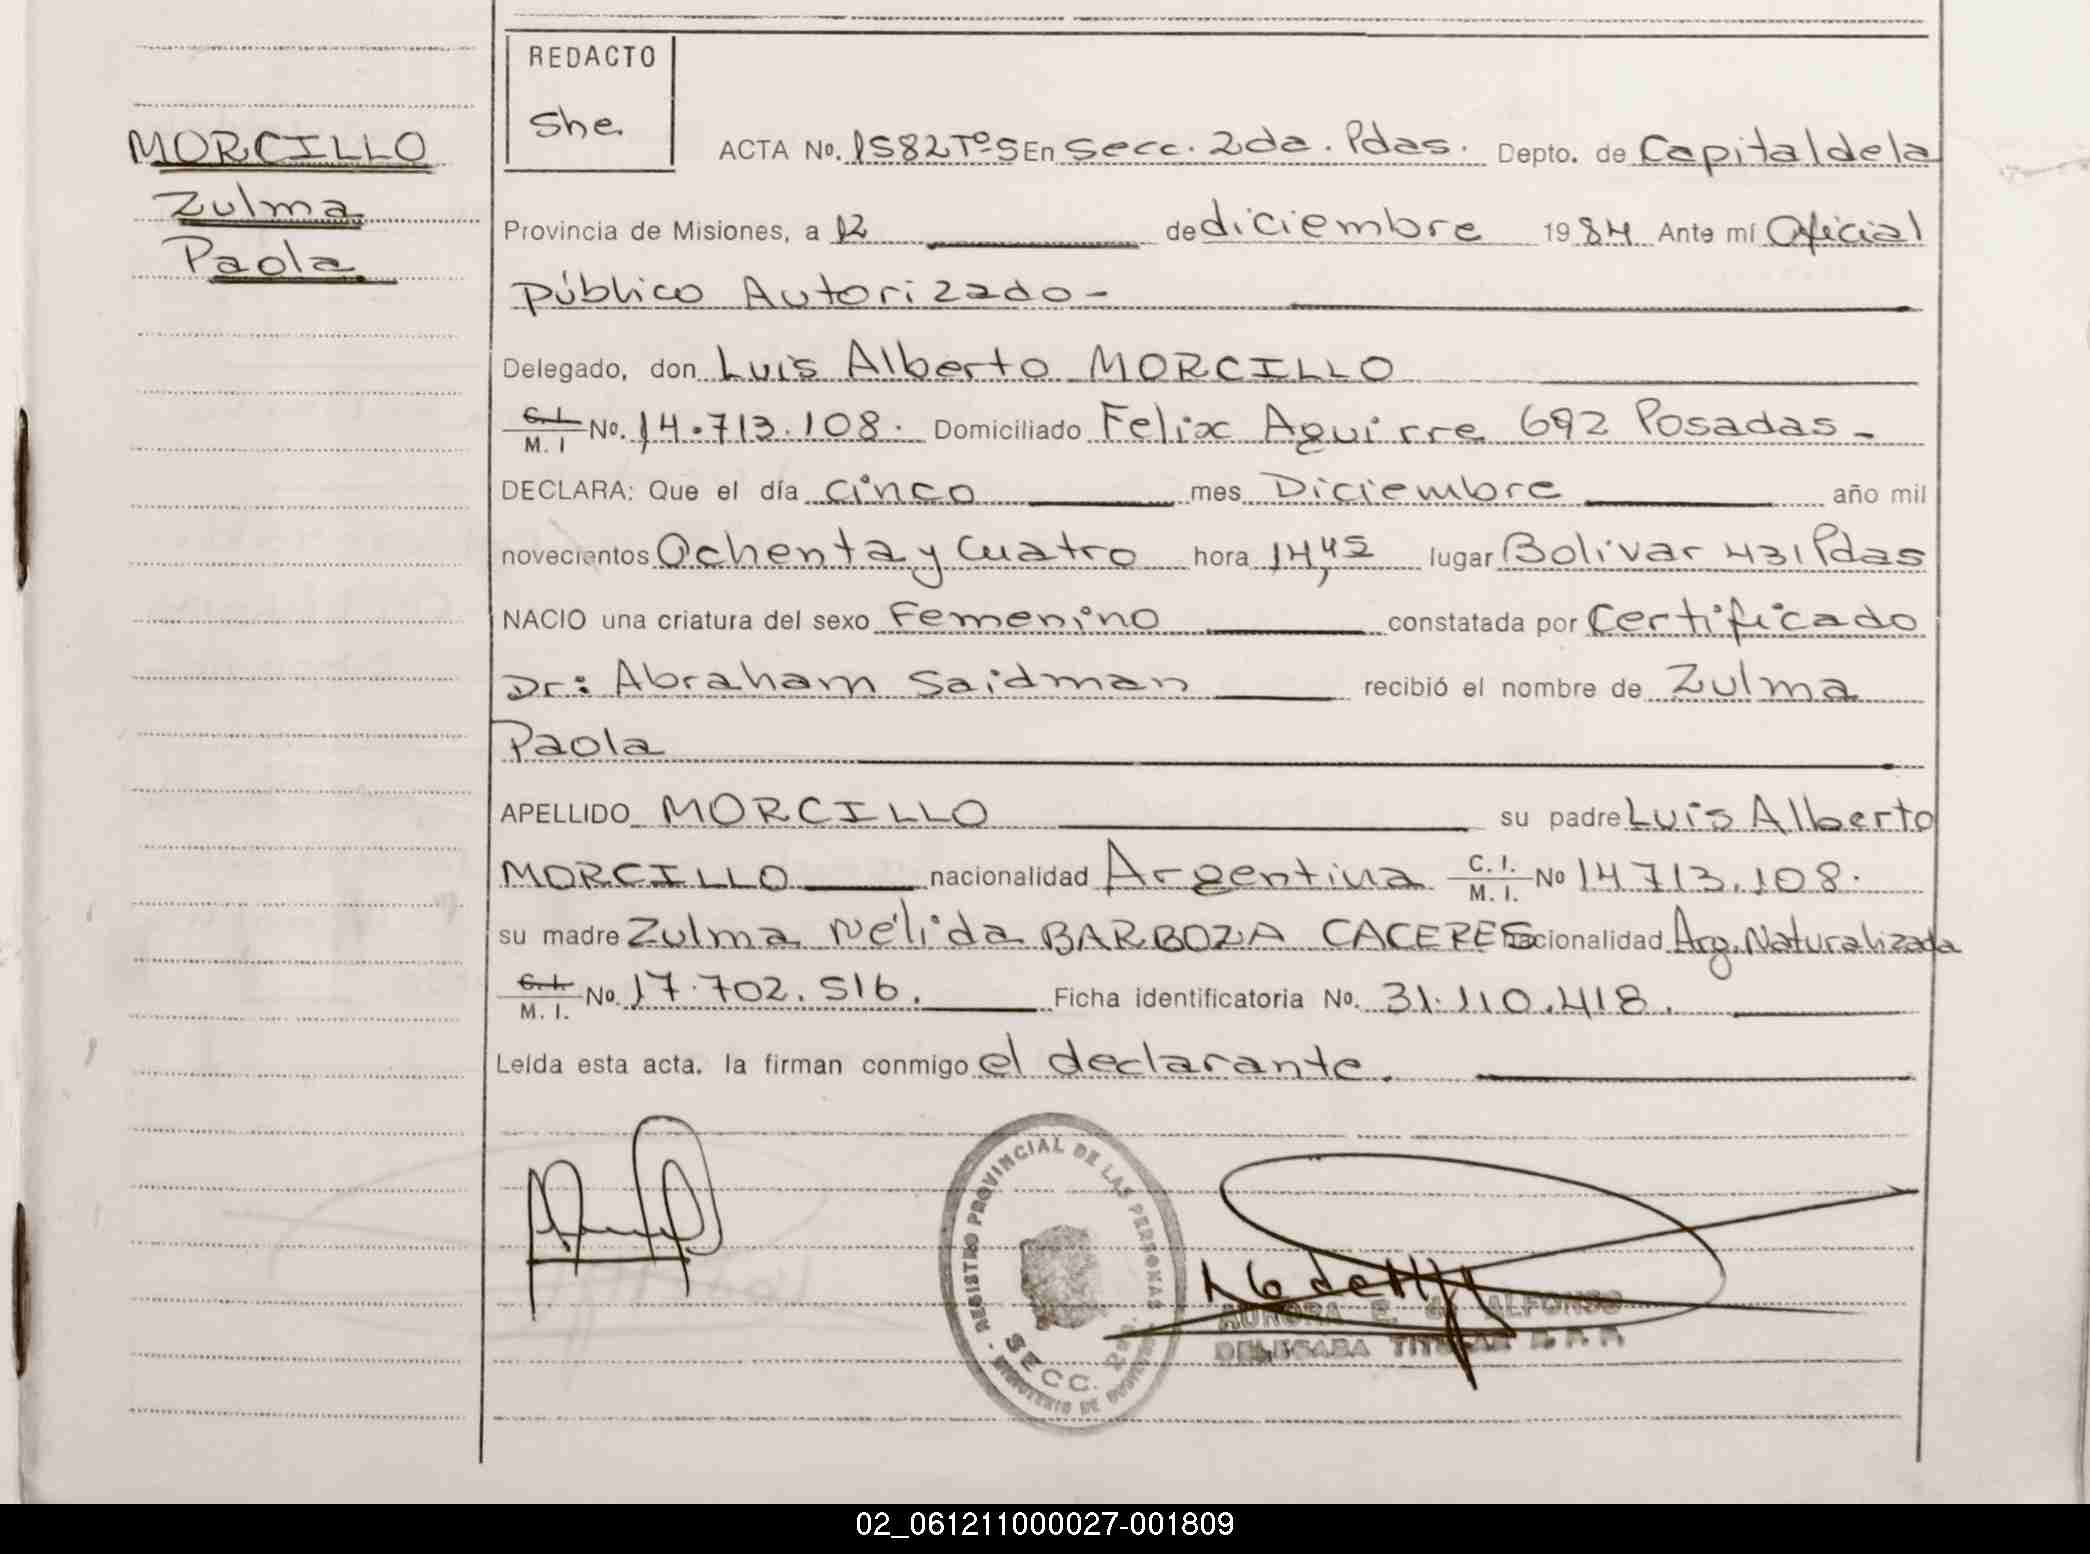 REDACTO
She
MORCILLO
Zulma
Paola
ACTA No. 1582 Tº 5 En Secc. 2da. Pdas. Depto. de Capital de la
Provincia de Misiones, a 12 de diciembre 1984 Ante mí Oficial
Público Autorizado-
Delegado, don Luis Alberto MORCILLO
C. I. M. I No. 14.713.108. Domiciliado Felix Aguirre 692 Posadas-
DECLARA: Que el día cinco mes Diciembre año mil
novecientos Ochenta y Cuatro hora 14,45 lugar Bolivar 431 Pdas
NACIO una criatura del sexo Femenino constatada por Certificado
Dr: Abraham Saidman recibió el nombre de Zulma
Paola
APELLIDO MORCILLO su padre Luis Alberto
MORCILLO nacionalidad Argentina C. I. M. I. No 14.713.108.
su madre Zulma Nélida BARBOZA CACERES nacionalidad Arg. Naturalizada
C. I. M. I. No. 17.702.516. Ficha identificatoria No. 31.110.418.
Leída esta acta. la firman conmigo el declarante.
REGISTRO PROVINCIAL DE LAS PERSONAS
SECC. 2da
MINISTERIO DE
AURORA E. de ALFONSO
DELEGADA TITULAR R. P. P.
02_061211000027-001809